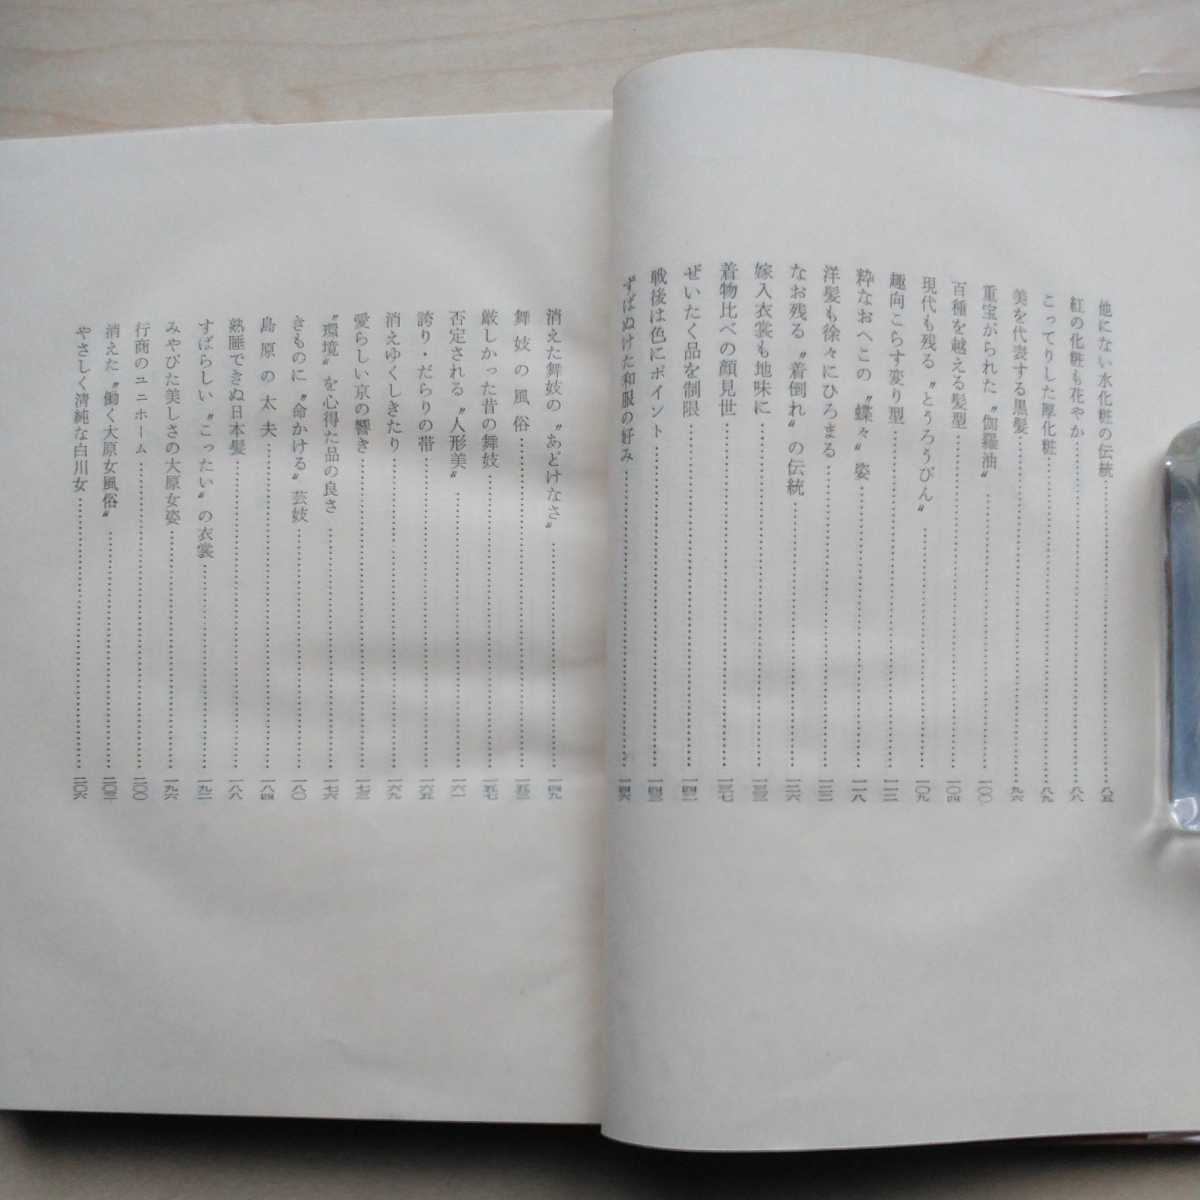 他にない水化粧の伝統…………八五
紅の化粧も花やか…………八八
こってりした厚化粧…………八九
美を代表する黒髪…………九六
重宝がられた〝伽羅油〟…………一〇〇
百種を越える髪型…………一〇四
現代も残る〝とうろうびん〟…………一〇九
趣向こらす変り型…………一一二
粋なおへこの〝蝶々〟姿…………一一八
洋髪も徐々にひろまる…………一二二
なお残る〝着倒れ〟の伝統…………一二六
嫁入衣裳も地味に…………一三三
着物比べの顔見世…………一三七
ぜいたく品を制限…………一四一
戦後は色にポイント…………一四三
ずばぬけた和服の好み…………一四六
消えた舞妓の〝あどけなさ〟…………一四九
舞妓の風俗…………一五三
厳しかった昔の舞妓…………一五七
否定される〝人形美〟…………一六一
誇り・だらりの帯…………一六五
消えゆくしきたり…………一六九
愛らしい京の響き…………一七三
〝環境〟を心得た品の良さ…………一七六
きものに〝命かける〟芸妓…………一八〇
島原の太夫…………一八四
熟睡できぬ日本髪…………一八八
すばらしい〝こったい〟の衣裳…………一九二
みやびた美しさの大原女姿…………一九六
行商のユニホーム…………二〇〇
消えた〝働く大原女風俗〟…………二〇三
やさしく清純な白川女…………二〇六